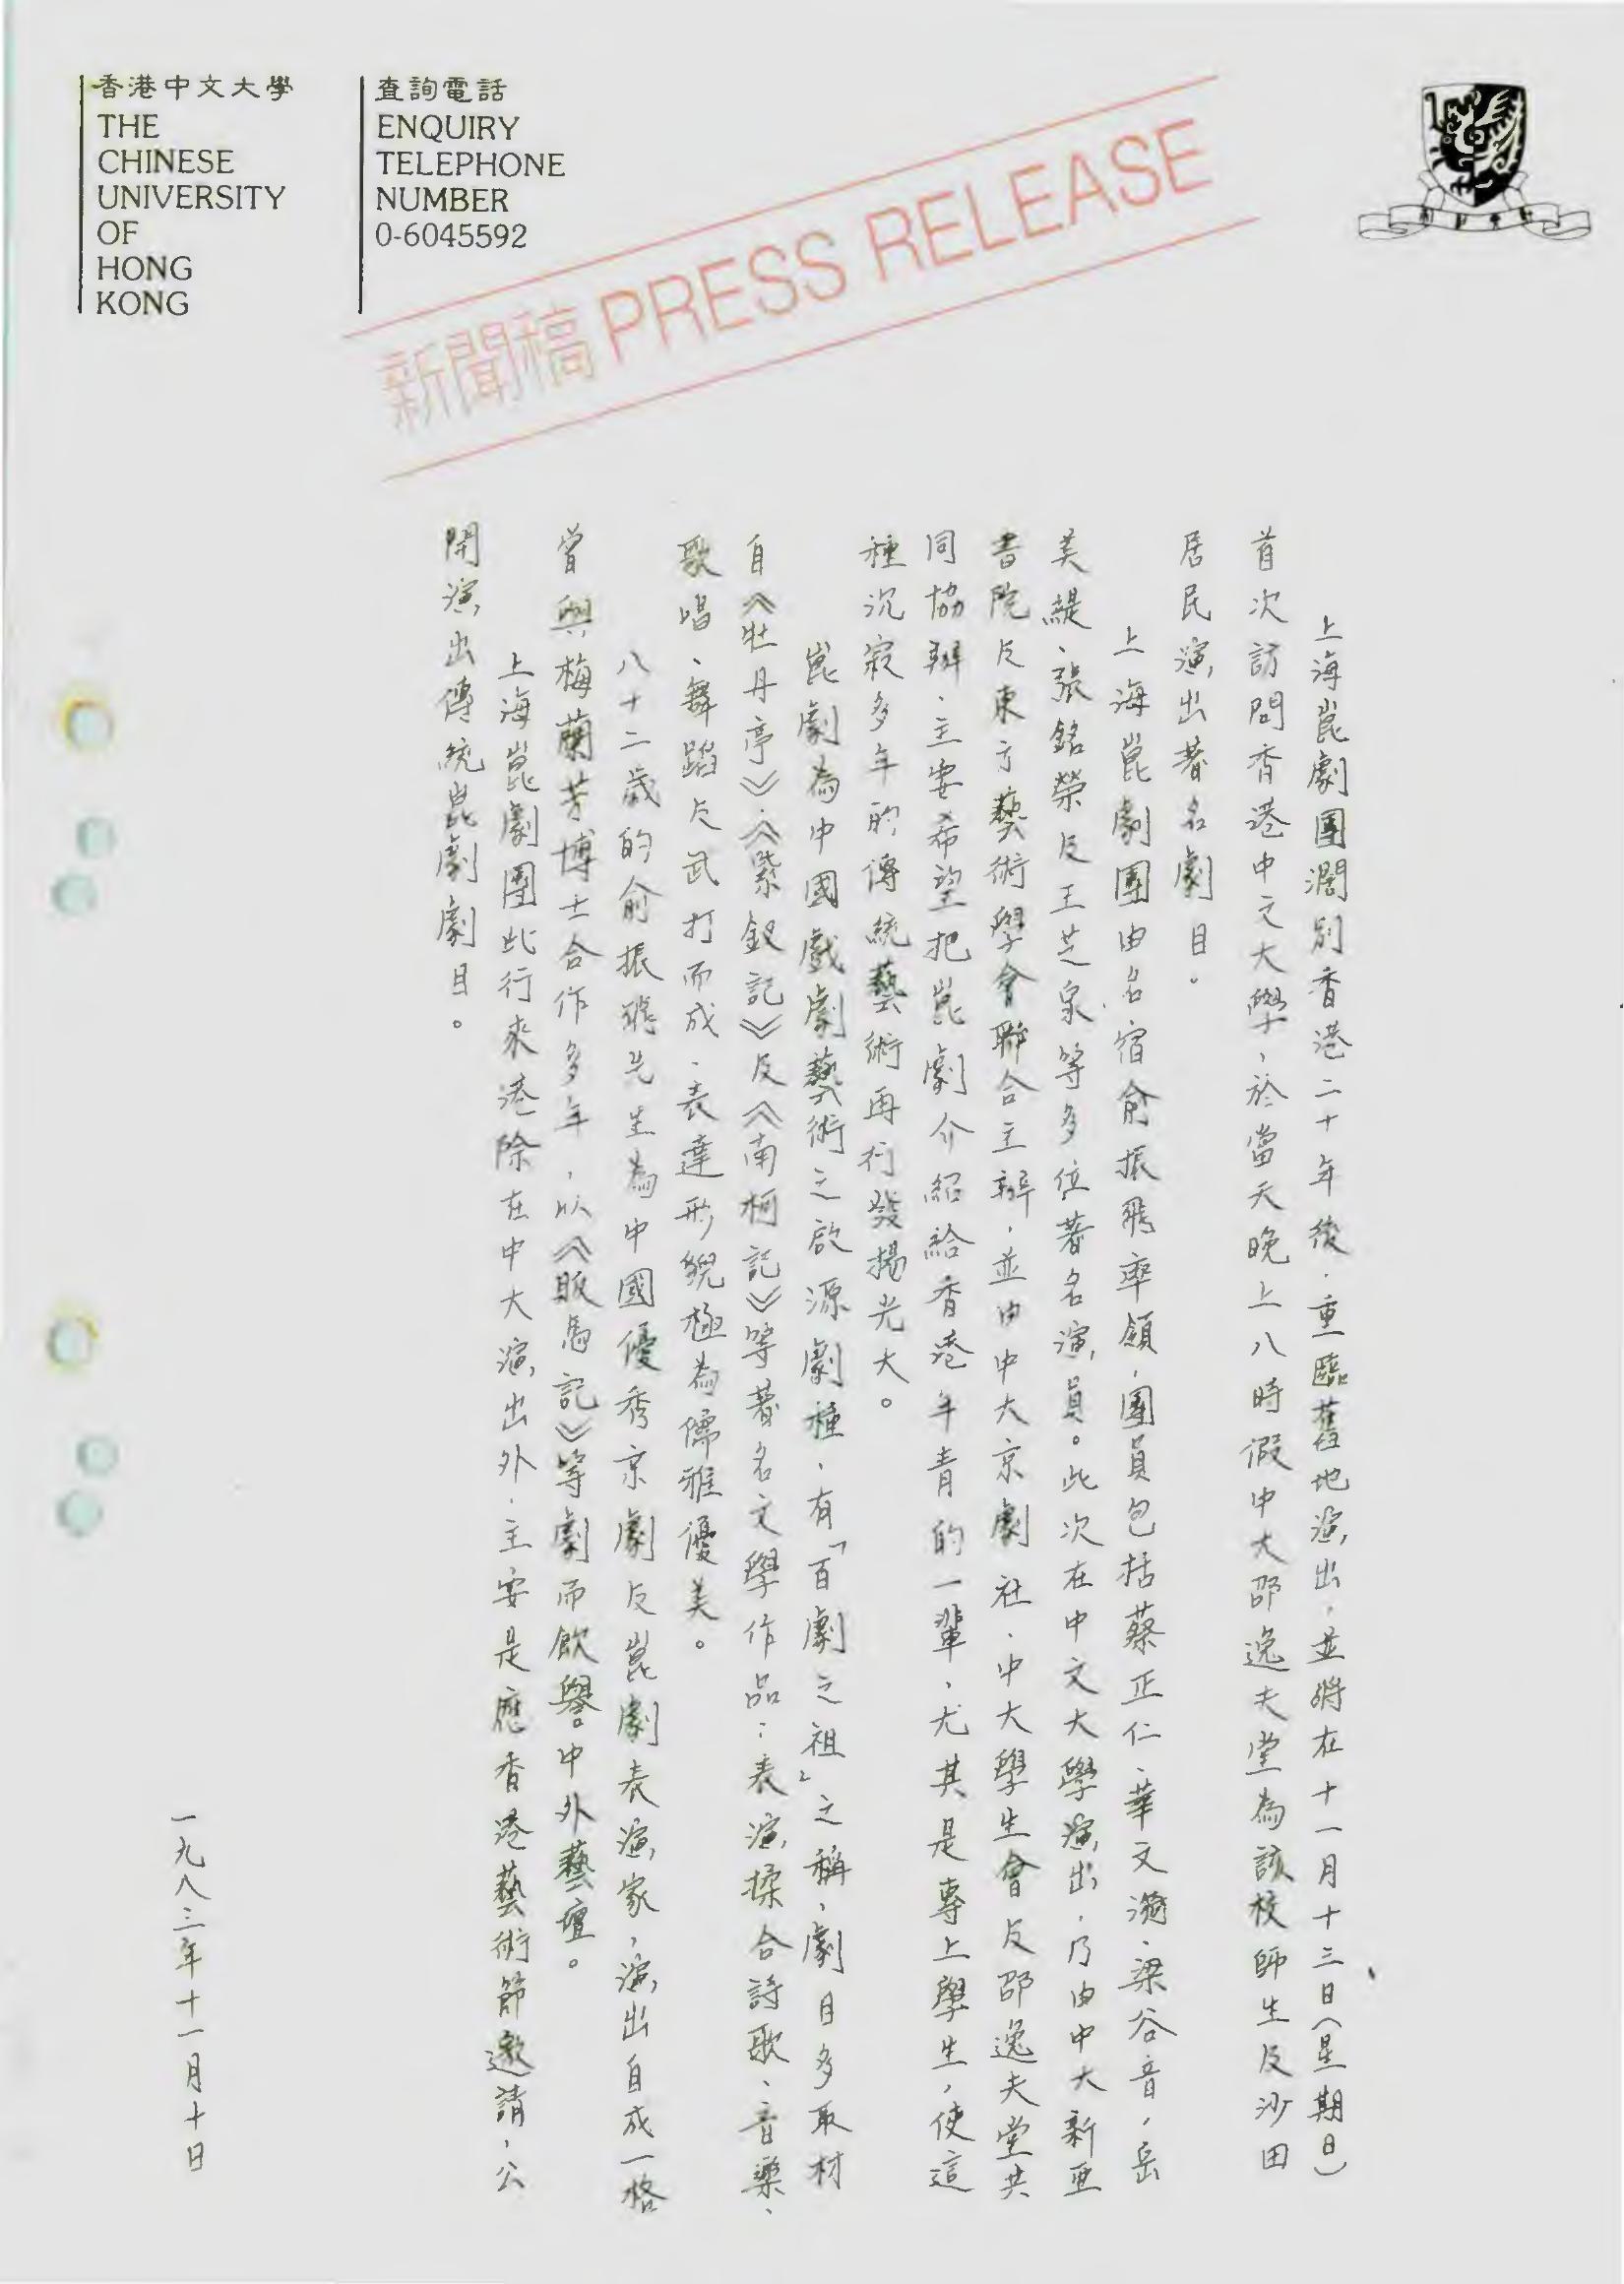 香港中文大學
THE
CHINESE
UNIVERSITY
OF
HONG
KONG
查詢電話
ENQUIRY
TELEPHONE
NUMBER
0-6045592
新聞稿 PRESS RELEASE
上海崑劇團濶別香港二十年後，重臨舊地演出，並將在十一月十三日（星期日）
首次訪問香港中文大學，於當天晚上八時假中大邵逸夫堂為該校師生及沙田
居民演出著名劇目。
上海崑劇團由名宿俞振飛率領，團員包括蔡正仁、華文漪、梁谷音、岳
美緹、張銘榮及王芝泉等多位著名演員。此次在中文大學演出，乃由中大新亞
書院及東方藝術學會聯合主辦，並由中大京劇社、中大學生會及邵逸夫堂共
同協辦，主要希望把崑劇介紹給香港年青的一輩，尤其是專上學生，使這
種沉寂多年的傳統藝術再行發揚光大。
崑劇為中國戲劇藝術之啟源劇種，有「百劇之祖」之稱，劇目多取材
自《牡丹亭》、《紫釵記》及《南柯記》等著名文學作品；表演揉合詩歌、音樂、
歌唱、舞蹈及武打而成，表達形貌極為儒雅優美。
八十二歲的俞振飛先生為中國優秀京劇及崑劇表演家，演出自成一格
曾與梅蘭芳博士合作多年，以《販馬記》等劇而飲譽中外藝壇。
上海崑劇團此行來港除在中大演出外，主要是應香港藝術節邀請，公
開演出傳統崑劇劇目。
一九八三年十一月十日